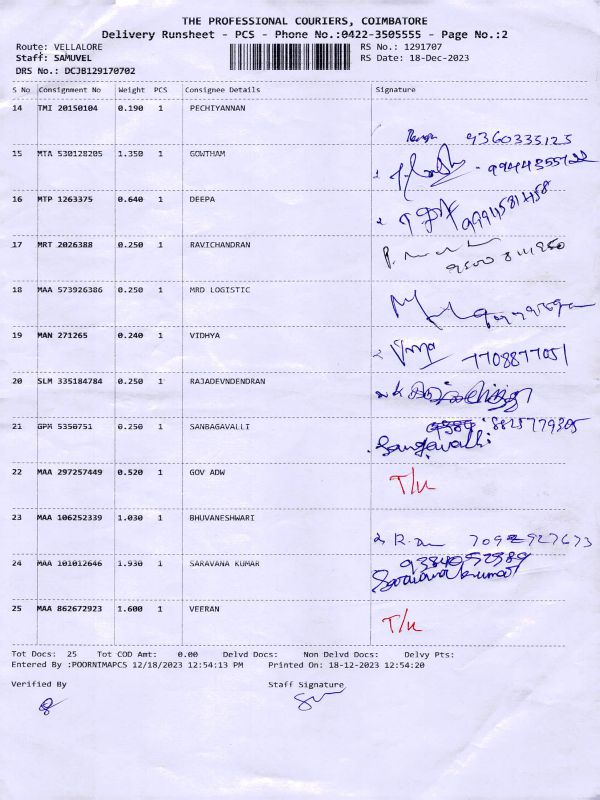 THE PROFESSIONAL COURIERS, COIMBATORE
Delivery Runsheet - PCS - Phone No.:0422-3505555 - Page No.:2
Route: VELLALORE RS No.: 1291707
Staff: SAMUVEL RS Date: 18-Dec-2023
DRS No.: DCJB129170702
S No Consignment No Weight PCS Consignee Details Signature
14 TMI 20150104 0.190 1 PECHIYANNAN
9360335125
15 MTA 530128205 1.350 1 GOWTHAM
16 MTP 1263375 0.640 1 DEEPA
17 MRT 2026388 0.250 1 RAVICHANDRAN
18 MAA 573926386 0.250 1 MRD LOGISTIC
19 MAN 271265 0.240 1 VIDHYA
7708877051
20 SLM 335184784 0.250 1 RAJADEVNDENDRAN
21 GPM 5350751 0.250 1 SANBAGAVALLI
22 MAA 297257449 0.520 1 GOV ADW T/u
23 MAA 106252339 1.030 1 BHUVANESHWARI
24 MAA 101012646 1.930 1 SARAVANA KUMAR
Saravanakumar
25 MAA 862672923 1.600 1 VEERAN T/u
Tot Docs: 25 Tot COD Amt: 0.00 Delvd Docs: Non Delvd Docs: Delvy Pts:
Entered By :POORNIMAPCS 12/18/2023 12:54:13 PM Printed On: 18-12-2023 12:54:20
Verified By Staff Signature